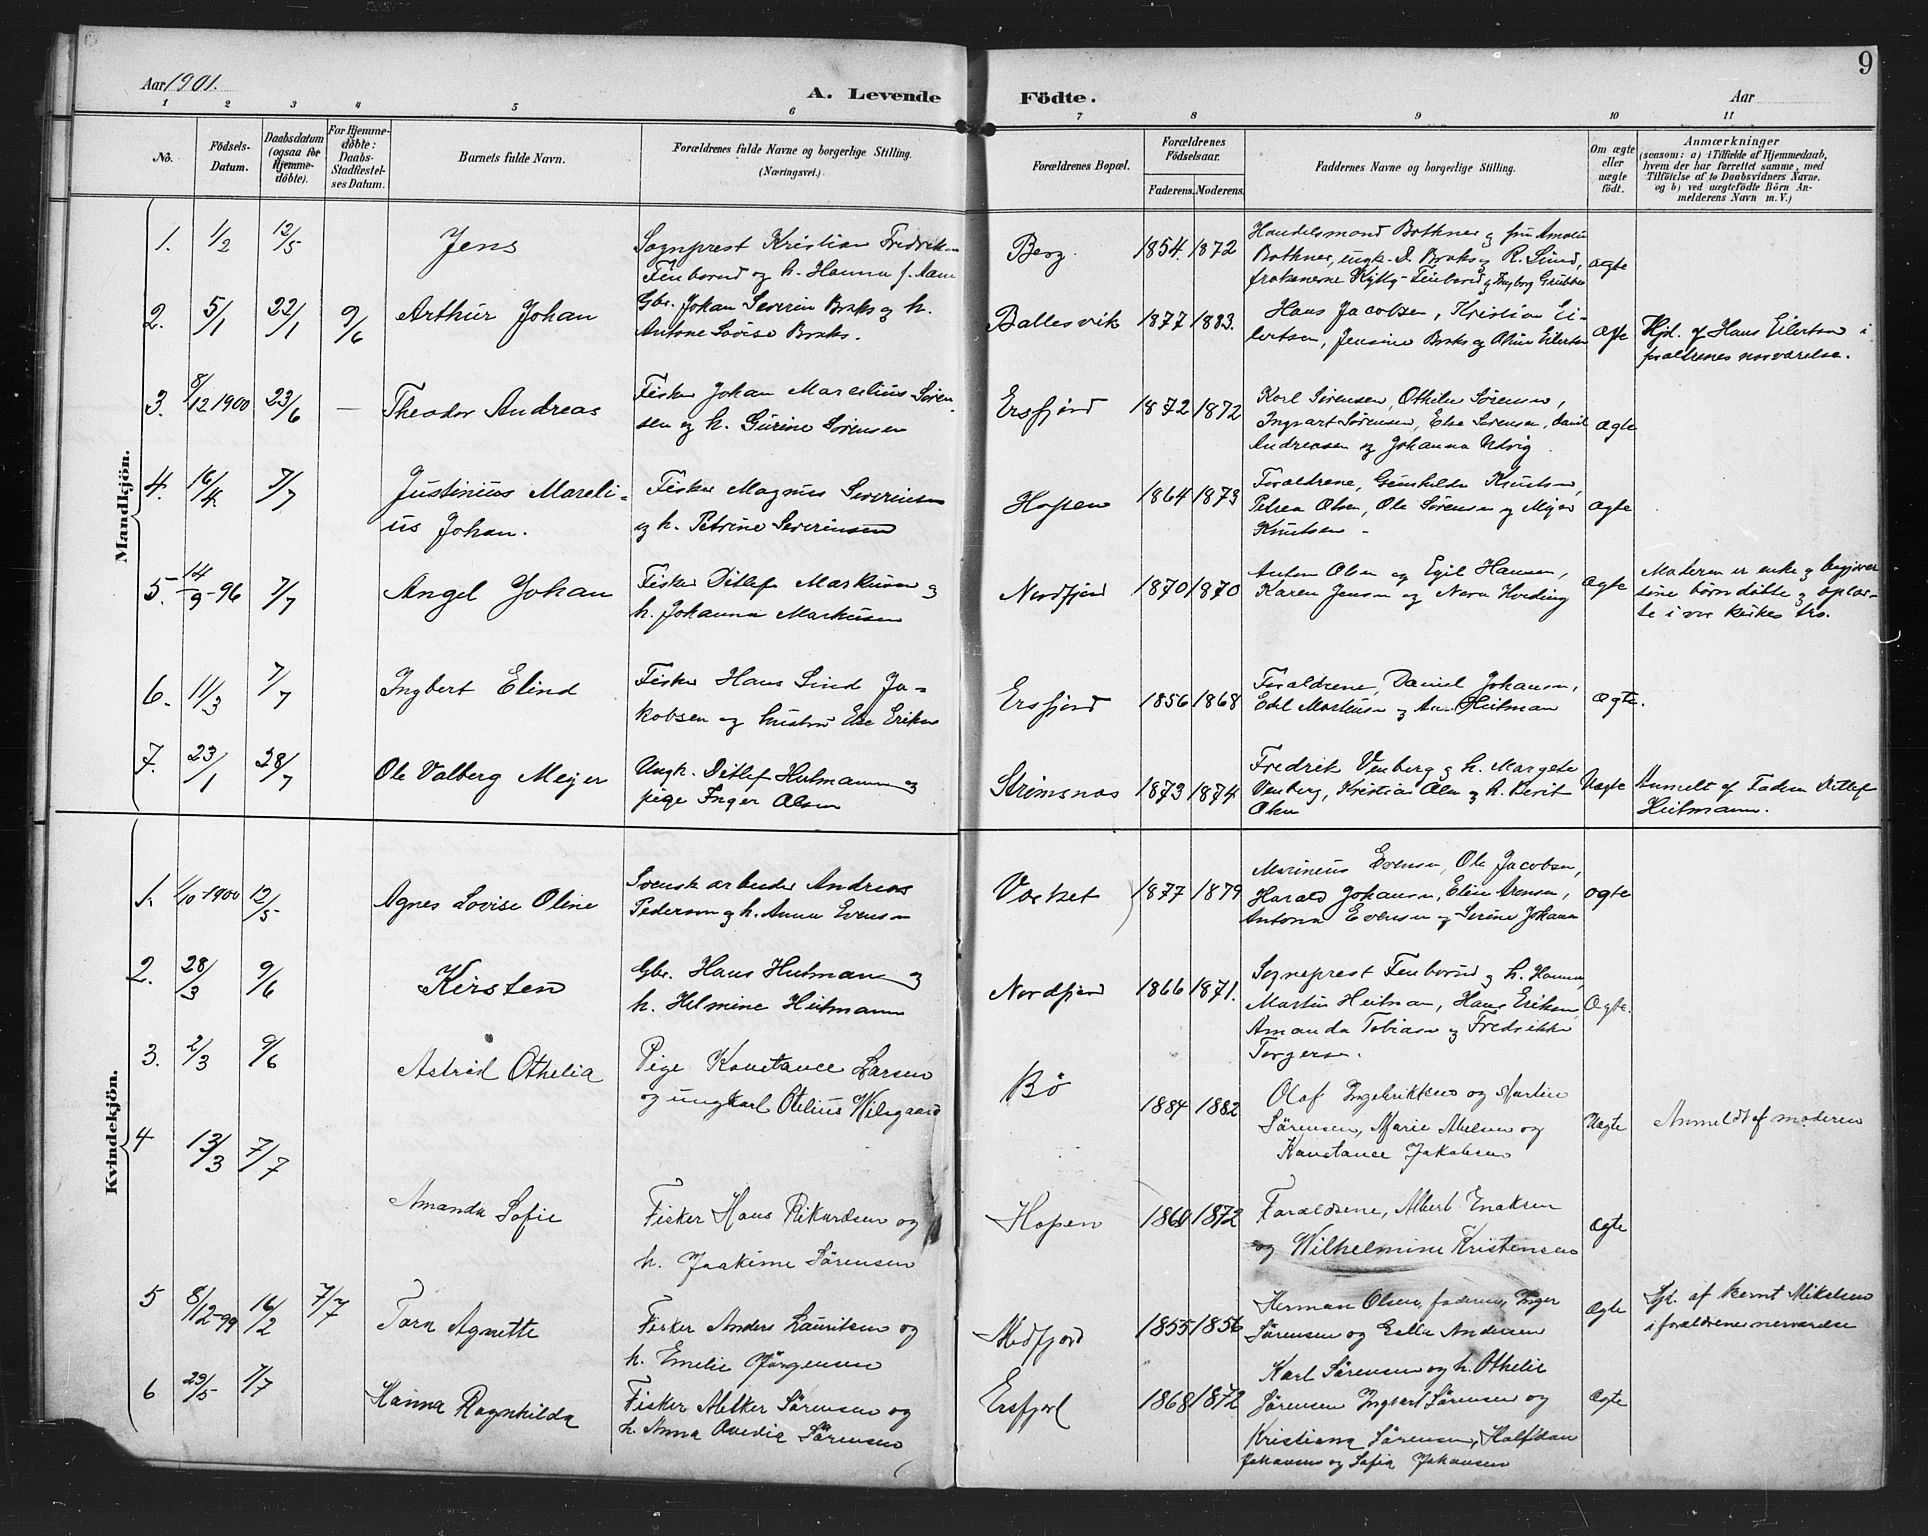 Aar 1901.
A. Levende Födte.
Aar
9
1 2 3 4 5 6 7 8 9 10 11
No.
Födsels-Datum.
Daabsdatum (ogsaa for Hjemme-döbte).
For Hjemme-döbte: Daabs-Stadfestel-ses Datum.
Barnets fulde Navn.
Forældrenes fulde Navne og borgerlige Stilling. (Næringsvei.)
Forældrenes Bopæl.
Forældrenes Födselsaar.
Faderens. Moderens.
Faddernes Navne og borgerlige Stilling.
Om ægte eller uægte födt.
Anmærkninger
(saasom: a) i Tilfælde af Hjemmedaab,
hvem der har forrettet samme, med
Tilföielse af to Daabsvidners Navne.
og b) ved uægtefödte Börn An-
melderens Navn m. V.)
Mandkjön.
1. 1/2 12/5 Jens
Sognprest Kristian Fredrik
og h. Hanna f.
Berg. 1854. 1872
Handelsmand Bothner og fru Amalie
Bothner, ungk. D. Braks og R. Sund,
frøknerne og Ingborg
ægte
2. 5/1 22/1 9/6 Arthur Johan
Gbr. Johan Severin Braks og h.
Antone Lovise Braks.
Ballesvik 1877 1883.
Hans Jacobsen, Kristian Ei-
lertsen, Jensine Braks og Oline Eilertsen
ægte
Hjd. af Hans Eilertsen i
foraldrenes nærværelse.
3. 8/12 1900 23/6 — Theodor Andreas
Fisker Johan Marcelius Søren-
sen og h. Gurine Sørensen
Ersfjord 1872 1872
Karl Sørensen, Othilie Sørensen,
Ingvart Sørensen, Else Sørensen, David
Andreasen og Johanna Utvig.
ægte
4. 16/4 7/7 Justinius Mareli-
us Johan.
Fisker Magnus Severinsen
og h. Petrine Severinsen
Hopen 1864 1873
Foraldrene, Gunhilda Knutsen,
Petrea Olsen, Ole Sørensen og Meyer
Knutsen
ægte
5. 14/9-96 7/7 Angel Johan
Fisker Ditlef Markusen og
h. Johanna Markusen
Nordfjord 1870 1870
Anton Olsen og Egil Hansen,
Karen Jensen og Nora Hveding
ægte
Moderen er enke og begjærer
sine børn døbte og oplær-
te i vor kirkes tro.
6. 11/3 7/7 Ingbert Elind
Fisker Hans Lind Ja-
kobsen og hustru Else Eriksen
Ersfjord 1856 1868
Foraldrene, Daniel Johansen,
Edel Martensen og Ane Heitman
ægte.
7. 23/1 28/7 Ole Valberg Meyer
Ungk. Ditlef Heitmann og
pige Inger Olsen
Strømsnas 1873 1874
Fredrik Venberg og h. Margete
Venberg, Kristian Olsen og h. Berit
Olsen
Uægte
Anmelt af Faderen Ditlef
Heitmann.
Kvindekjön.
1. 1/10-1900 12/5 Agnes Lovise Oline
Svensk arbeider Andreas
Pedersen og h. Anna Evensen
Vasket 1877 1879
Marinius Evensen, Ole Jacobsen,
Harald Johansen, Eline Arensen,
Antona Evensen og Serine Johansen
ægte
2. 28/3 9/6 Kirsten
Gbr. Hans Heitmann og
h. Helmine Heitmann
Nordfjord 1866 1871.
Sogneprest og h. Hanna,
Martin Heitman, Hans Eriksen
Amanda Tobiasen og Fredrikke
Torgersen.
Ægte.
3. 2/3 9/6 Astrid Othelia
Pige Konstance Larsen
og ungkarl Otelius Wilsgaard
Bø 1884 1882
Olaf Ingebrigtsen og Martin
Sørensen, Marie Abelsen og
Konstance Jakobsen
Uægte
Anmeldt af moderen
4 13/3 7/7 Amanda Sofie
Fisker Hans Rikardsen og
h. Joakime Sørensen
Hopen 1860 1872
Foraeldrene, Albert Enoksen
og Wilhelmine Kristensen
Ægte
5 8/12-99 16/2 7/7 Tora Agnette
Fisker Anders Lauritsen og
h. Emelie Jørgensen
Medfjord 1855 1856
Herman Olsen, faderen, Inger
Sørensen og Ella Andersen
Ægte
Hjd. af Bernt Mikalsen
i forældrenes nærværelse
6 29/5 7/7 Hanna Ragnhilda
Fisker Melker Sørensen og
h. Anna Ovedia Sørensen
Ersfjord 1868 1872
Karl Sørensen og h. Othelie
Sørensen Ingvart Sørensen og
Kristiana Sørensen, Halfdan
Johansen og Sofie Johansen
Ægte